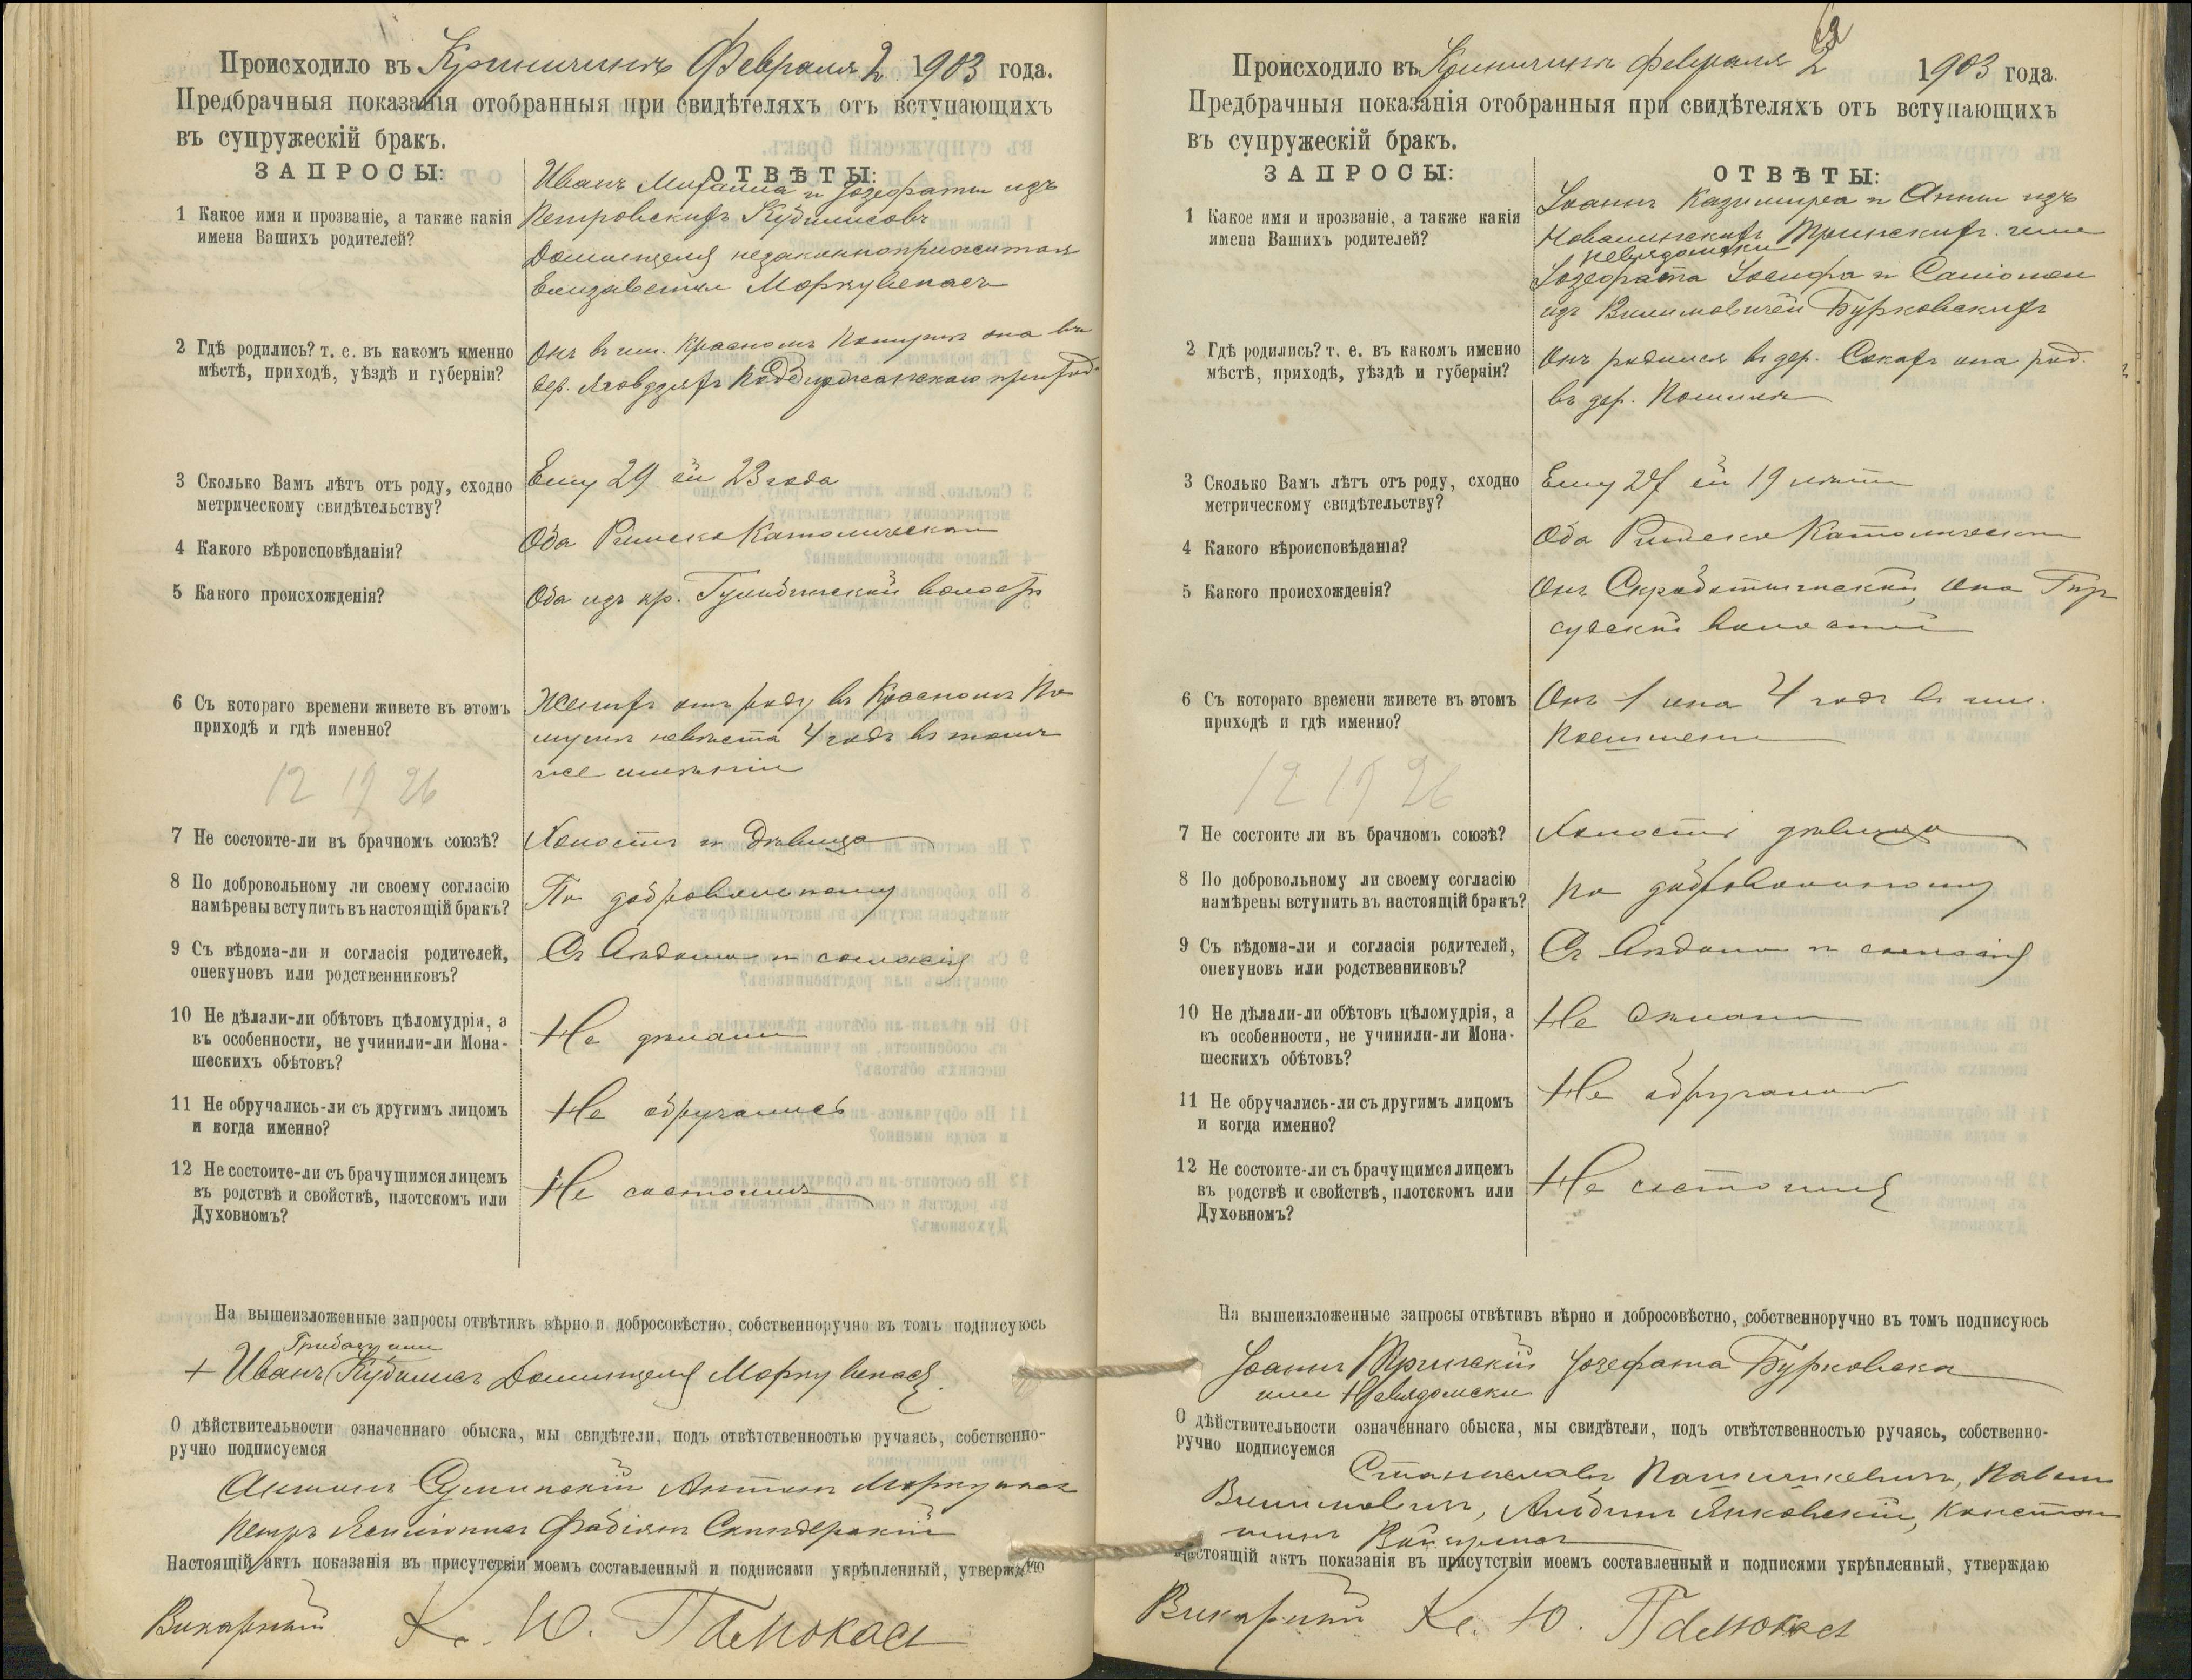 Происходило въ Криничинъ Февраля 2 1903 года.
Предбрачныя показанія отобранныя при свидѣтеляхъ отъ вступающихъ
въ супружескій бракъ.
ЗАПРОСЫ:
ОТВѢТЫ:
1 Какое имя и прозваніе, а также какія
имена Вашихъ родителей?
Иванъ Михаила и Іозефаты изъ
Петровскихъ Кубилисовъ
Доминцеля незаконноприжитая
Елизаветы
2 Гдѣ родились? т. е. въ какомъ именно
мѣстѣ, приходѣ, уѣздѣ и губерніи?
Онъ въ им. Красномъ она въ
дер.
3 Сколько Вамъ лѣтъ отъ роду, сходно
метрическому свидѣтельству?
Ему 29 ей 23 года
4 Какого вѣроисповѣданія?
Оба Римско Католическаго
5 Какого происхожденія?
Оба изъ кр. волости
6 Съ котораго времени живете въ этомъ
приходѣ и гдѣ именно?
Женихъ отъ роду въ Красномъ
невѣста 4 годъ въ томъ
же имѣніи
12 19 26
7 Не состоите-ли въ брачномъ союзѣ?
Холостъ и Дѣвица
8 По добровольному ли своему согласію
намѣрены вступить въ настоящій бракъ?
По добровольному
9 Съ вѣдома-ли и согласія родителей,
опекуновъ или родственниковъ?
Съ вѣдома и согласія
10 Не дѣлали-ли обѣтовъ цѣломудрія, а
въ особенности, не учинили-ли Мона-
шескихъ обѣтовъ?
Не дѣлали
11 Не обручались-ли съ другимъ лицомъ
и когда именно?
Не обручались
12 Не состоите-ли съ брачущимся лицемъ
въ родствѣ и свойствѣ, плотскомъ или
Духовномъ?
Не состоимъ
На вышеизложенные запросы отвѣтивъ вѣрно и добросовѣстно, собственноручно въ томъ подписуюсь
+ Иванъ Кубилисъ Доминцеля
О дѣйствительности означеннаго обыска, мы свидѣтели, подъ отвѣтственностью ручаясь, собственно-
ручно подписуемся
Антонъ
Петръ Фабіянъ
Настоящій актъ показанія въ присутствіи моемъ составленный и подписями укрѣпленный, утверждаю
Викарный К. Ю.
Происходило въ Криничинъ февраля 2 1903 года.
Предбрачныя показанія отобранныя при свидѣтеляхъ отъ вступающихъ
въ супружескій бракъ.
ЗАПРОСЫ:
ОТВѢТЫ:
1 Какое имя и прозваніе, а также какія
имена Вашихъ родителей?
Іоаннъ Казимира и Анны изъ
или
Іозефата Іосифа и Саломеи
изъ Вилимовичей Бурковскихъ
2 Гдѣ родились? т. е. въ какомъ именно
мѣстѣ, приходѣ, уѣздѣ и губерніи?
Онъ родился въ дер. она род.
въ дер.
3 Сколько Вамъ лѣтъ отъ роду, сходно
метрическому свидѣтельству?
Ему 27 ей 19 лѣтъ
4 Какого вѣроисповѣданія?
Оба Римско Католическаго
5 Какого происхожденія?
Онъ она
волостей
6 Съ котораго времени живете въ этомъ
приходѣ и гдѣ именно?
Онъ 1 она 4 годъ въ им.
12 19 26
7 Не состоите ли въ брачномъ союзѣ?
Холостъ дѣвица
8 По добровольному ли своему согласію
намѣрены вступить въ настоящій бракъ?
По добровольному
9 Съ вѣдома-ли и согласія родителей,
опекуновъ или родственниковъ?
Съ вѣдома и согласія
10 Не дѣлали-ли обѣтовъ цѣломудрія, а
въ особенности, не учинили-ли Мона-
шескихъ обѣтовъ?
Не дѣлали
11 Не обручались-ли съ другимъ лицомъ
и когда именно?
Не обручались
12 Не состоите-ли съ брачущимся лицемъ
въ родствѣ и свойствѣ, плотскомъ или
Духовномъ?
Не состоимъ
На вышеизложенные запросы отвѣтивъ вѣрно и добросовѣстно, собственноручно въ томъ подписуюсь
Іоаннъ Іозефата Бурковска
или
О дѣйствительности означеннаго обыска, мы свидѣтели, подъ отвѣтственностью ручаясь, собственно-
ручно подписуемся
Станиславъ
Вилимовичъ, Альбинъ Янковскій, Констан
тинъ
Настоящій актъ показанія въ присутствіи моемъ составленный и подписями укрѣпленный, утверждаю
Викарный Кс. Ю.